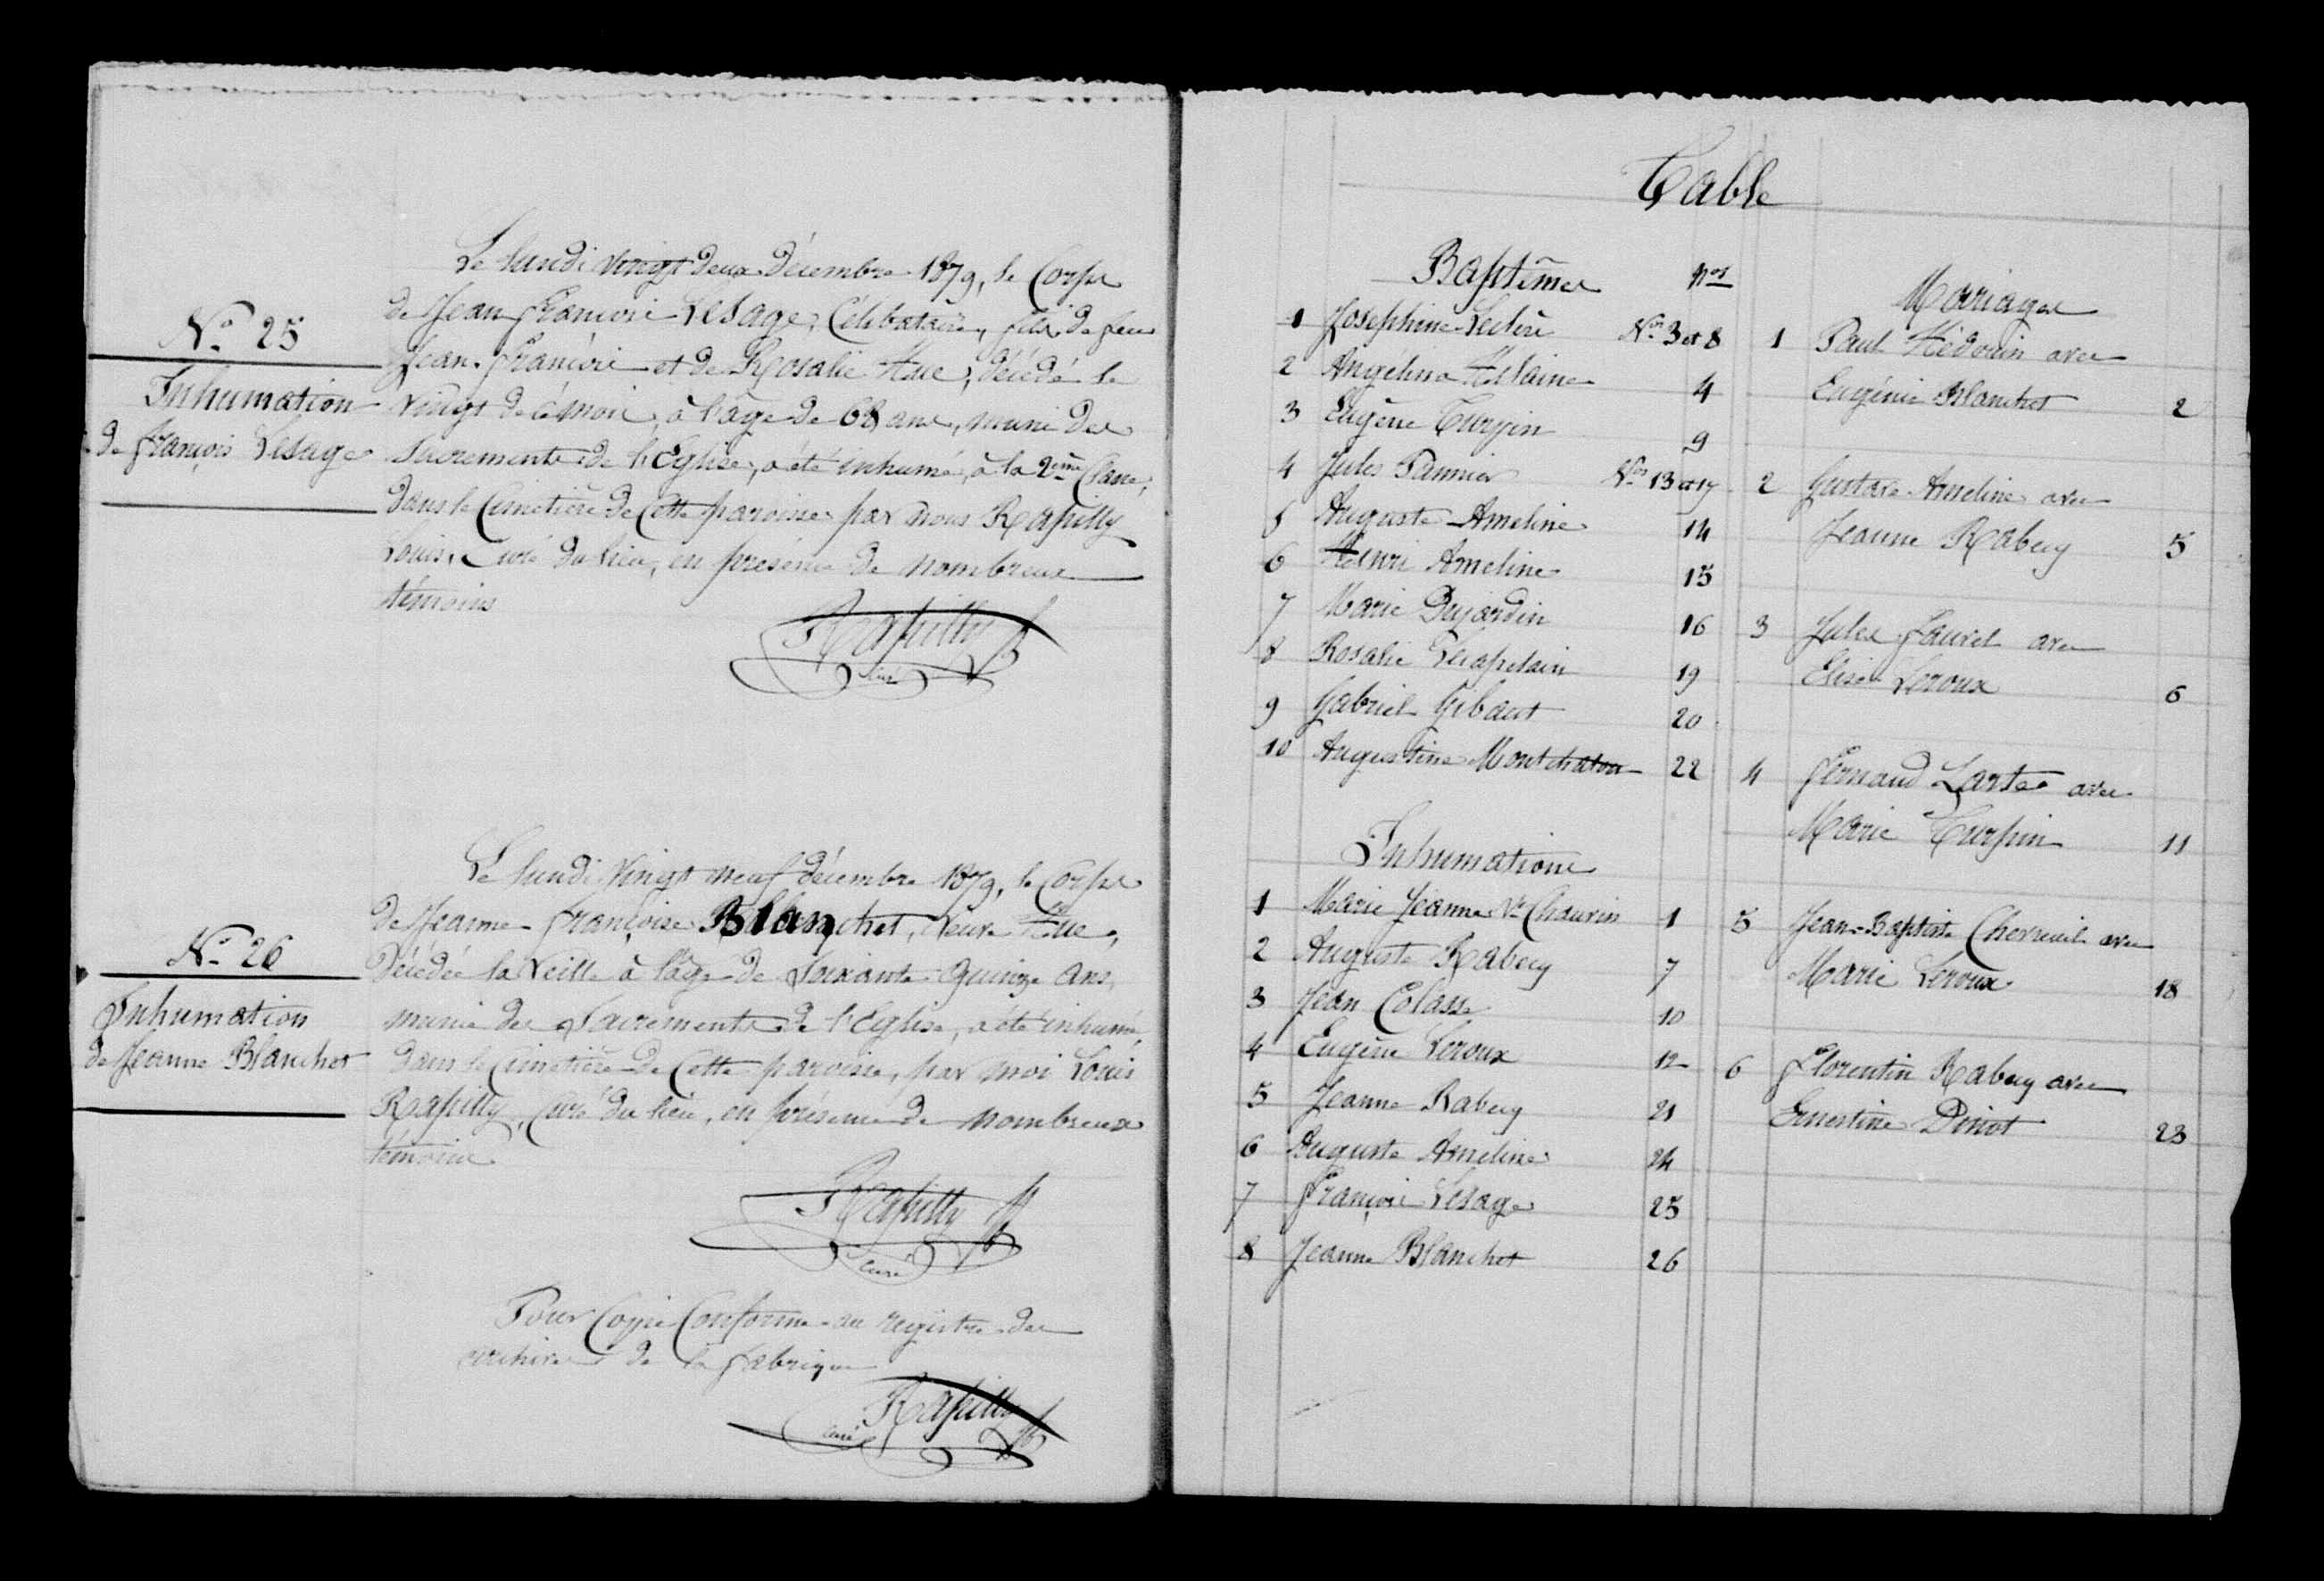 N° 25
Inhumation
de François Lesage
Le lundi vingt deux décembre 1879, le Corps
de Jean François Lesage, Célibataire, fils de feu
Jean-François et de Rosalie Hue, décédé le
vingt de ce mois, à l'âge de 68 ans, muni des
Sacrements de l'Eglise, a été inhumé, à la 2ème Classe,
dans le Cimetière de Cette paroisse par nous Rapilly
Louis, Curé du lieu, en présence de nombreux
témoins
Rapilly
curé
N° 26
Inhumation
de Jeanne Blanchet
Le lundi vingt neuf décembre 1879, le Corps
de Jeanne Françoise Blanchet, Veuve Hue,
décédée la Veille à l'âge de Soixante-Quinze ans,
munie des Sacrements de l'Eglise, a été inhumé,
dans le Cimetière de Cette paroisse, par moi Louis
Rapilly, Curé du lieu, en présence de nombreux
témoins
Rapilly
curé
Pour Copie Conforme au registre des
archives de la fabrique
Rapilly
curé
Table
Baptêmes Nos
1 Josephine Leclère Nos 3 et 8
2 Angélina Hélaine 4
3 Eugène Turpin 9
4 Jules Pannier Nos 13 et 17
5 Auguste Ameline 14
6 Henri Ameline 15
7 Marie Dujardin 16
8 Rosalie Lechapelain 19
9 Gabriel Gibaut 20
10 Augustine Montchaton 22
Inhumations
1 Marie Jeanne Ve Chauvin 1
2 Auguste Rabecy 7
3 Jean Colasse 10
4 Eugène Leroux 12
5 Jeanne Rabecy 21
6 Auguste Ameline 24
7 François Lesage 25
8 Jeanne Blanchet 26
Mariages
1 Paul Hédouin avec
Eugénie Blanchet 2
2 Gustave Ameline avec
Jeanne Rabecy 5
3 Jules Fauvel avec
Elise Leroux 6
4 Fernand avec
Marie Turpin 11
5 Jean-Baptiste Chevreuil avec
Marie Leroux 18
6 Florentin Rabecy avec
Ernestine 23